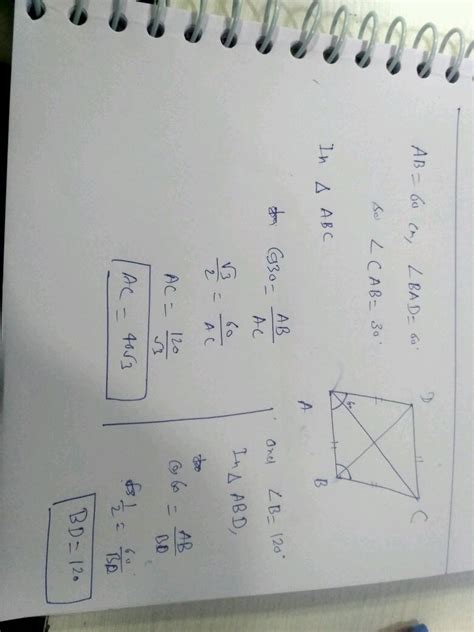 AB = 60 cm, ∠BAD = 60°
so ∠CAB = 30°
In △ ABC
Cos30 = AB/AC
√3/2 = 60/AC
AC = 120/√3
AC = 40√3
D
C
A
B
and ∠B = 120°
In △ ABD,
Cos60 = AB/BD
1/2 = 60/BD
BD = 120